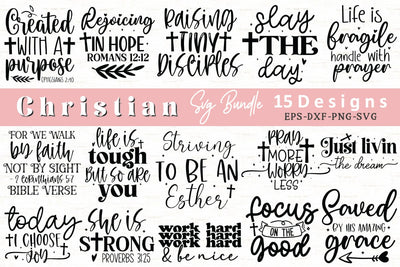 Created
WITH A
purpose
EPHESIANS 2:10
Rejoicing
IN HOPE
ROMANS 12:12
RAISING
TINY
Disciples
slay
THE
day
Life is
fragile
handle with
prayer
Christian
Svg Bundle
15 Designs
EPS-DXF-PNG-SVG
FOR WE WALK
by faith
NOT BY SIGHT
2 CORINTHIANS 5:7
BIBLE VERSE
life is
tough
but so are
you
Striving
TO BE AN
Esther
PRAY
MORE
WORRY
LESS
Just livin
the dream
today
I CHOOSE
JOY
she is
STRONG
PROVERBS 31:25
work hard
work hard
work hard
& be nice
focus
ON THE
good
Saved
BY HIS AMAZING
grace